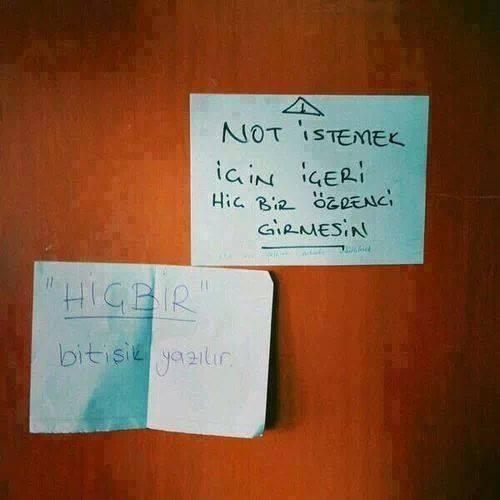 NOT İSTEMEK
İÇİN İÇERİ
HİÇ BİR ÖĞRENCİ
GİRMESİN
"HİÇBİR"
bitişik yazılır.